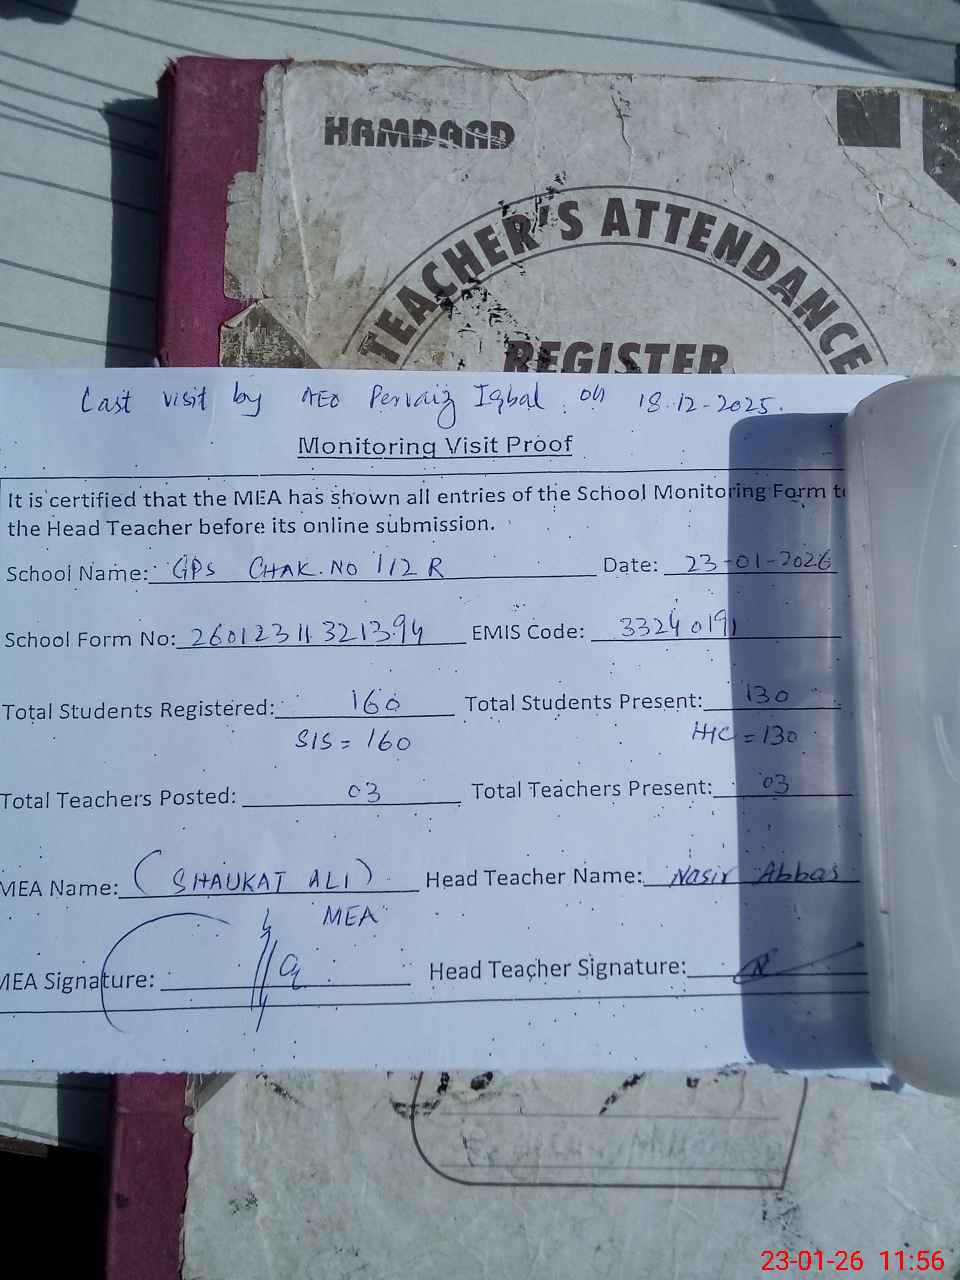 HAMDARD
TEACHER'S ATTENDANCE
REGISTER
Last visit by AEO Pervaiz Iqbal on 18-12-2025.
Monitoring Visit Proof
It is certified that the MEA has shown all entries of the School Monitoring Form to
the Head Teacher before its online submission.
School Name: GPS CHAK.NO 112 R Date: 23-01-2026
School Form No: 26012311321394 EMIS Code: 33240191
Total Students Registered: 160 Total Students Present: 130
SIS = 160 H/C = 130
Total Teachers Posted: 03 Total Teachers Present: 03
MEA Name: (SHAUKAT ALI) Head Teacher Name: Nasir Abbas
MEA
MEA Signature: Head Teacher Signature:
23-01-26 11:56